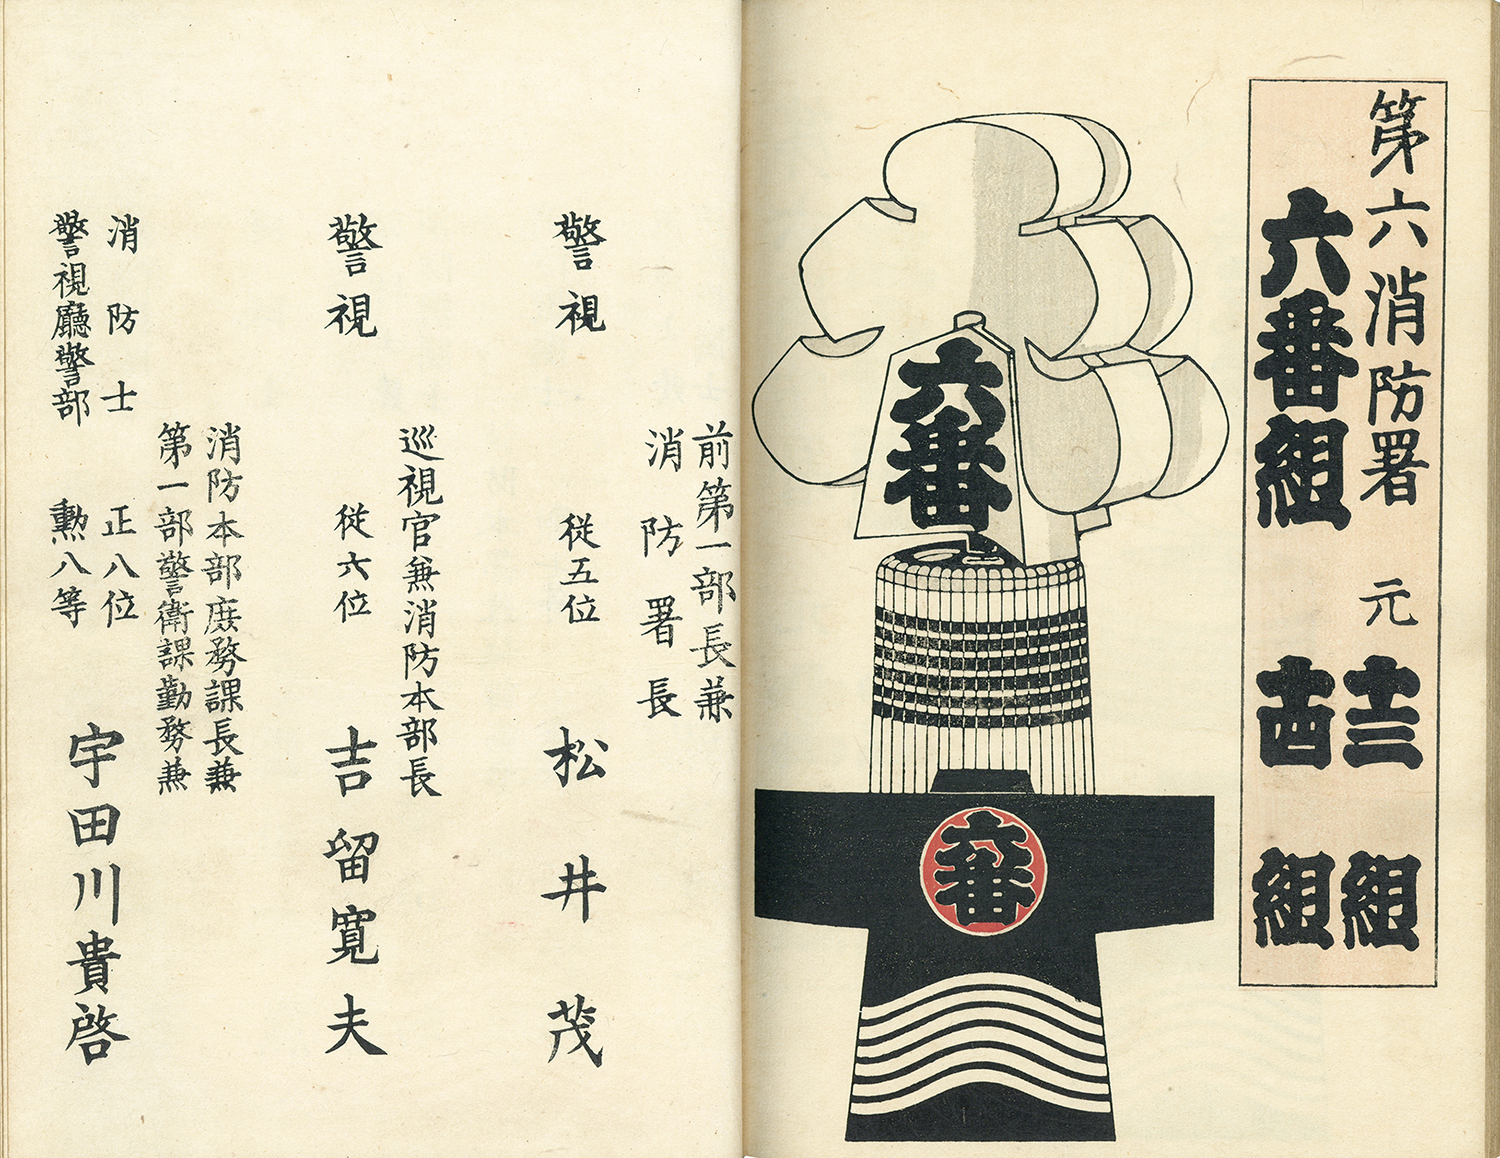 第六消防署 元 十三組
六番組 十四組
六番
六番
前第一部長兼
消防署長
警視 從五位 松井茂
巡視官兼消防本部長
警視 從六位 吉留寛夫
消防本部庶務課長兼
第一部警衛課勤務兼
消防士 正八位
警視廳警部 勲八等
宇田川貴啓